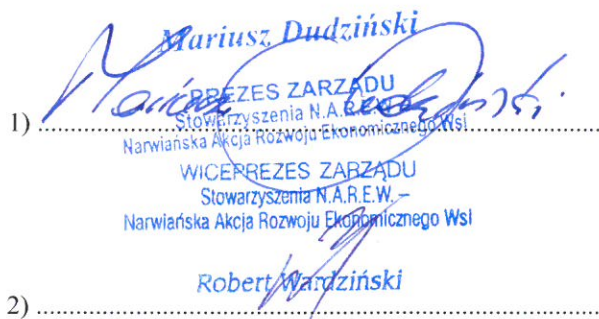 Mariusz Dudziński
PREZES ZARZĄDU
Stowarzyszenia N.A.R.E.W. –
Narwiańska Akcja Rozwoju Ekonomicznego Wsi
1) Mariusz Dudziński
WICEPREZES ZARZĄDU
Stowarzyszenia N.A.R.E.W. –
Narwiańska Akcja Rozwoju Ekonomicznego Wsi
Robert Wardziński
2)